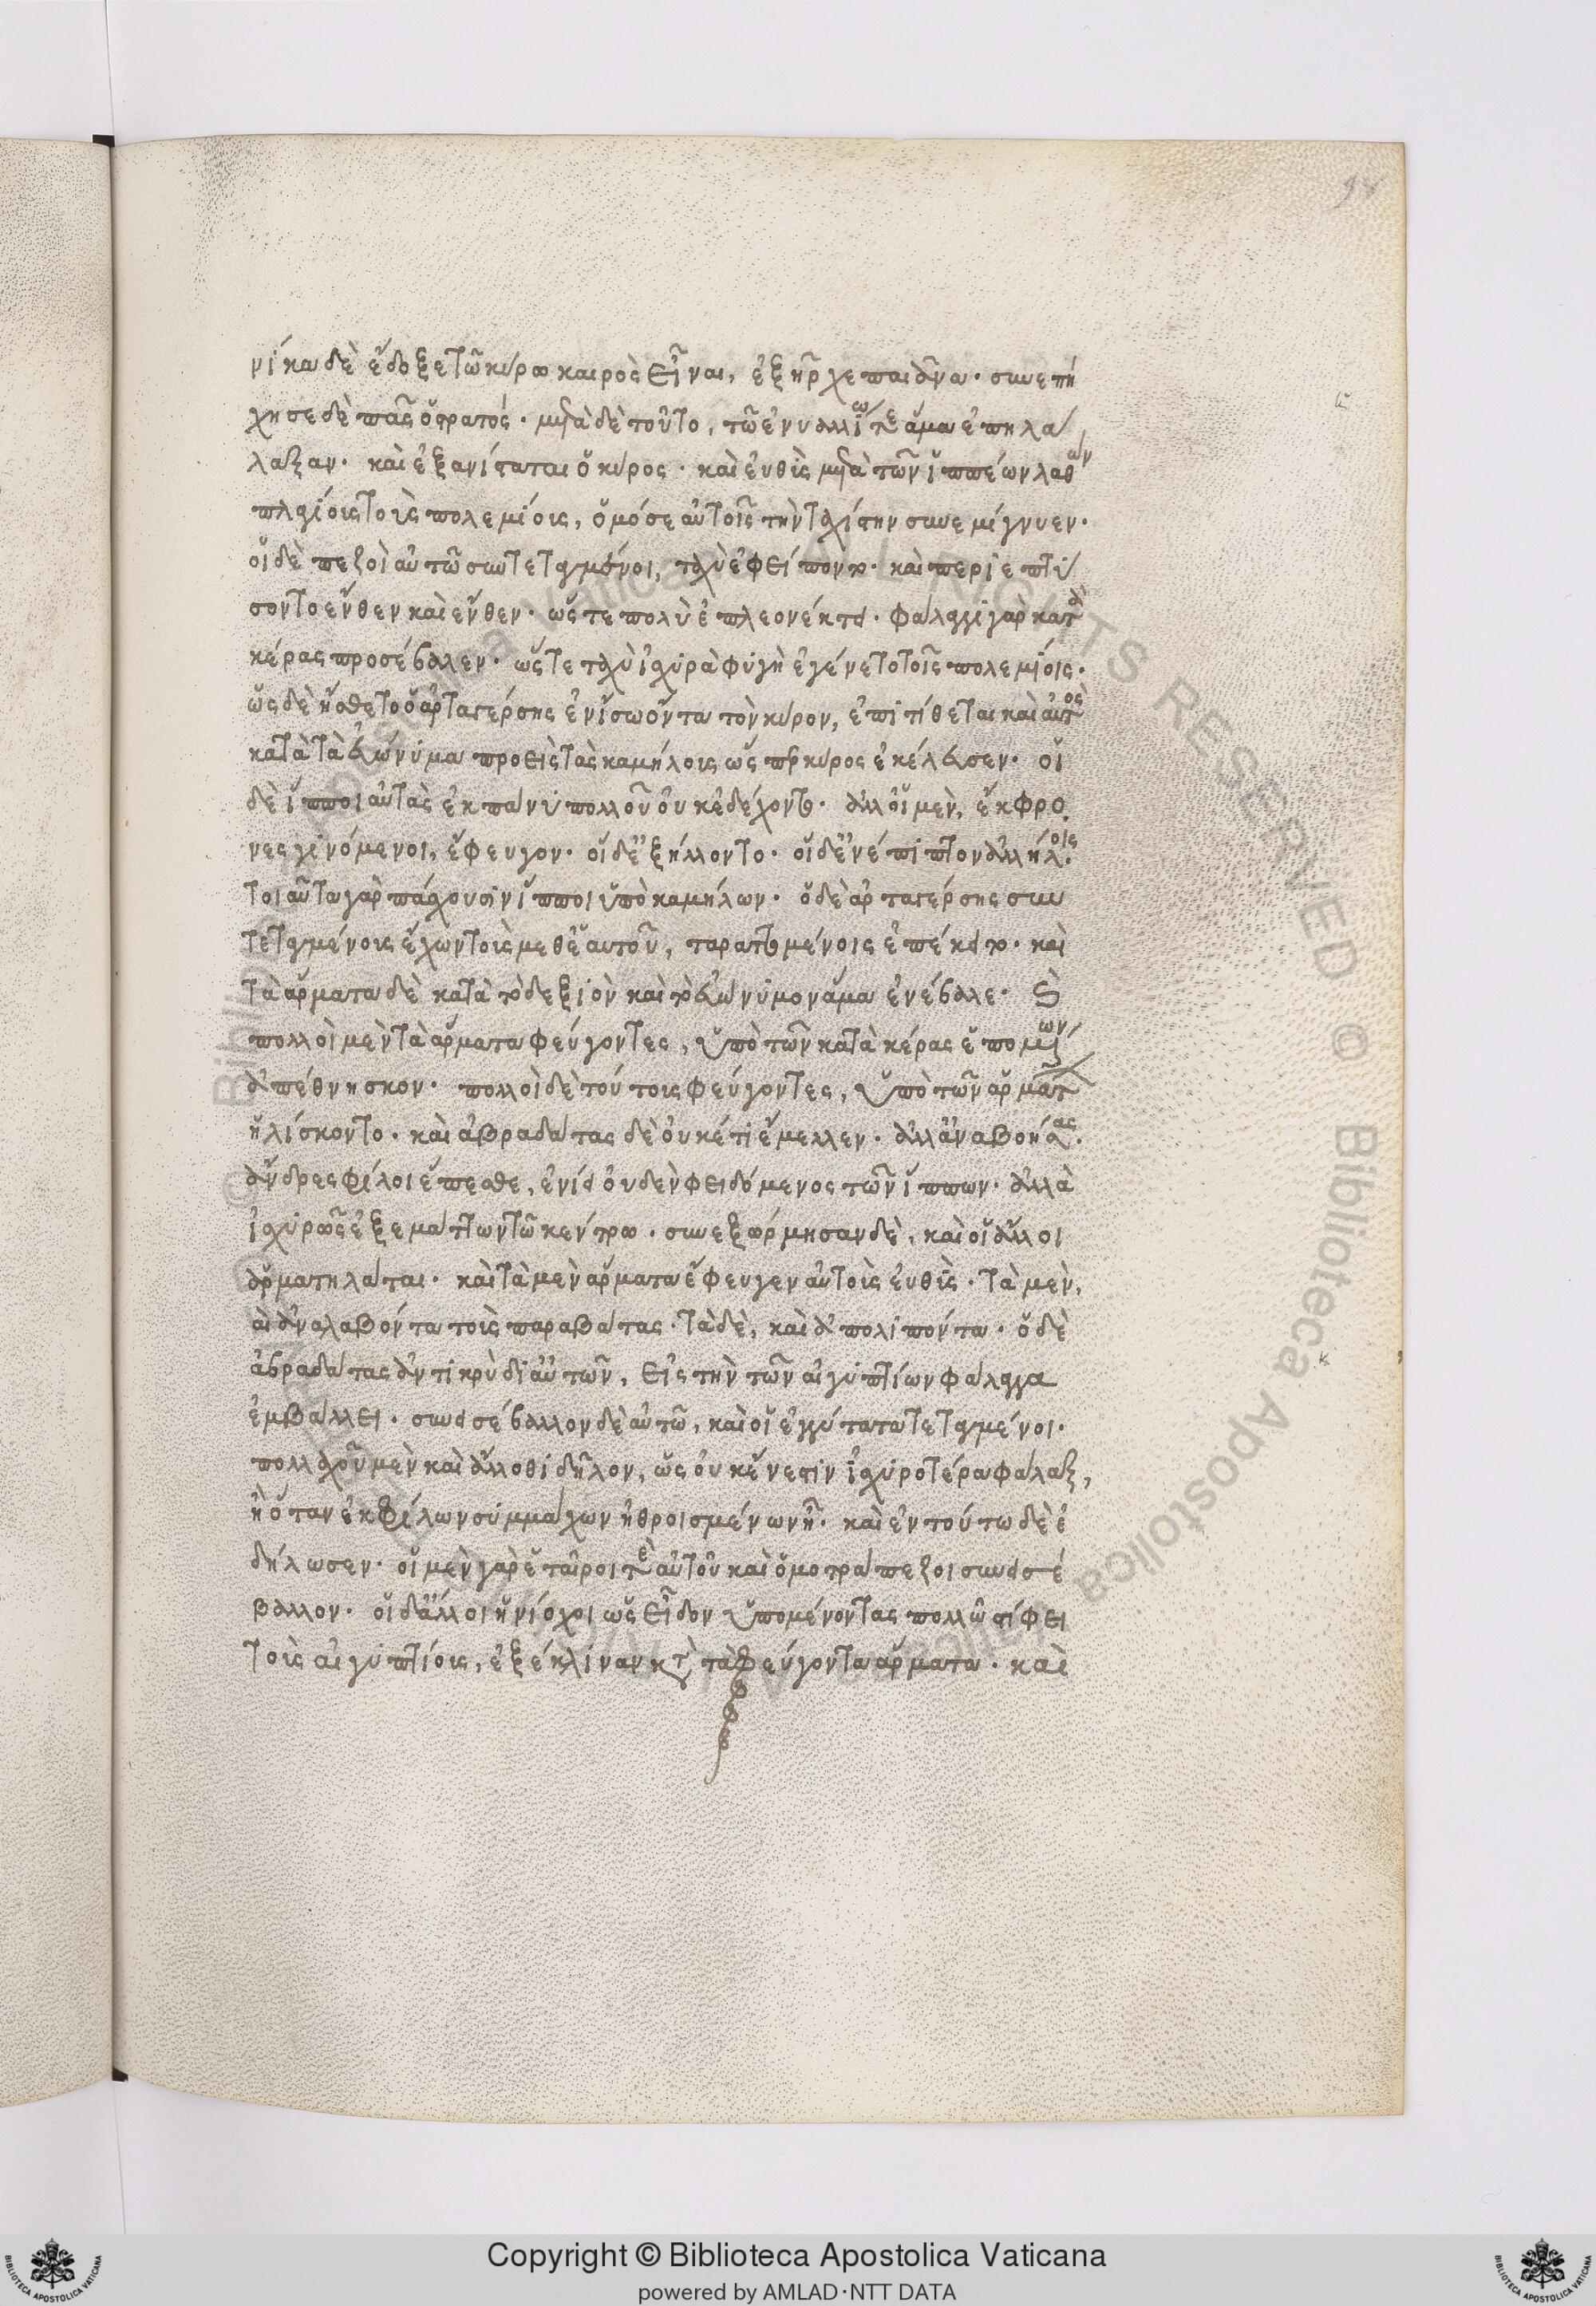 94
νίκα δὲ ἔδοξε τῶ κύρω καιρὸς εἶναι, ἐξῆρχε παιᾶνα· συνεπή
χησε δὲ πᾶς ὁ στρατός· μετὰ δὲ τοῦτο, τῶ ἐνυαλίω τε ἅμα ἐπηλά
λαξαν· καὶ ἐξανίσταται ὁ κύρος· καὶ εὐθὺς μετὰ τῶν ἱππέων λαβὼν
πλαγίους τοὺς πολεμίους, ὁμόσε αὐτοῖς τὴν ταχίστην συνεμίγνυεν·
οἱ δὲ πεζοὶ αὐτῶ συντεταγμένοι, ταχὺ ἐφείποντο· καὶ περιεπτύ
σοντο ἔνθεν καὶ ἔνθεν· ὥστε πολὺ ἐπλεονέκτει· φάλαγγι γὰρ κατὰ
κέρας προσέβαλεν· ὥστε ταχὺ ἰσχυρὰ φυγὴ ἐγένετο τοῖς πολεμίοις·
ὡς δὲ ἤσθετο ὁ ἀρταγέρσης ἐν ἔργω ὄντα τὸν κύρον, ἐπιτίθεται καὶ αὐτὸς
κατὰ τὰ εὐώνυμα προεὶς τὰς καμήλους ὡς περ κύρος ἐκέλευσεν· οἱ
δὲ ἵπποι αὐτὰς ἐκ πάνυ πολλοῦ οὐκ ἐδέχοντο· ἀλλ' οἱ μὲν, ἔκφρο
νες γινόμενοι, ἔφευγον· οἱ δ' ἐξήλλοντο· οἱ δ' ἐνέπιπτον ἀλλήλοις·
τοιαῦτα γὰρ πάσχουσιν ἵπποι ὑπὸ καμήλων· ὁ δὲ ἀρταγέρσης συν
τεταγμένους ἔχων τοὺς μεθ' ἑαυτοῦ, ταραττομένοις ἐπέκειτο· καὶ
τὰ ἅρματα δὲ κατὰ τὸ δεξιὸν καὶ τὸ εὐώνυμον ἅμα ἐνέβαλε· καὶ
πολλοὶ μὲν τὰ ἅρματα φεύγοντες, ὑπὸ τῶν κατὰ κέρας ἑπομένων
ἀπέθνησκον· πολλοὶ δὲ τούτους φεύγοντες, ὑπὸ τῶν ἁρμάτων
ἡλίσκοντο· καὶ ἀβραδάτας δὲ οὐκέτι ἔμελλεν· ἀλλ' ἀναβοήσας·
ἄνδρες φίλοι ἕπεσθε, ἐνίει οὐδὲν φειδόμενος τῶν ἵππων· ἀλλὰ
ἰσχυρῶς ἐξεμάττων τῶ κέντρω· συνεξώρμησαν δὲ, καὶ οἱ ἄλλοι
ἁρματηλάται· καὶ τὰ μὲν ἅρματα ἔφευγεν αὐτοὺς εὐθὺς· τὰ μὲν,
καὶ ἀναλαβόντα τοὺς παραβάτας· τὰ δὲ, καὶ ἀπολιπόντα· ὁ δὲ
ἀβραδάτας ἀντικρὺ δι' αὐτῶν, εἰς τὴν τῶν αἰγυπτίων φάλαγγα
ἐμβάλλει· συνεισέβαλλον δὲ αὐτῶ, καὶ οἱ ἐγγύτατα τεταγμένοι·
πολλαχοῦ μὲν καὶ ἄλλοθι δῆλον, ὡς οὐκ ἔνεστιν ἰσχυροτέρα φάλαξ,
ἢ ὅταν ἐκ φίλων συμμάχων ἠθροισμένων ἦ· καὶ ἐν τούτω δὲ ἐ
δήλωσεν· οἱ μὲν γὰρ ἑταῖροί τε αὐτοῦ καὶ ὁμοτράπεζοι συνεισέ
βαλλον· οἱ δ' ἄλλοι ἡνίοχοι ὡς εἶδον ὑπομένοντας πολλῶ στίφει
τοὺς αἰγυπτίους, ἐξέκλιναν κατὰ τὰ φεύγοντα ἅρματα· καὶ
Copyright © Biblioteca Apostolica Vaticana
powered by AMLAD·NTT DATA